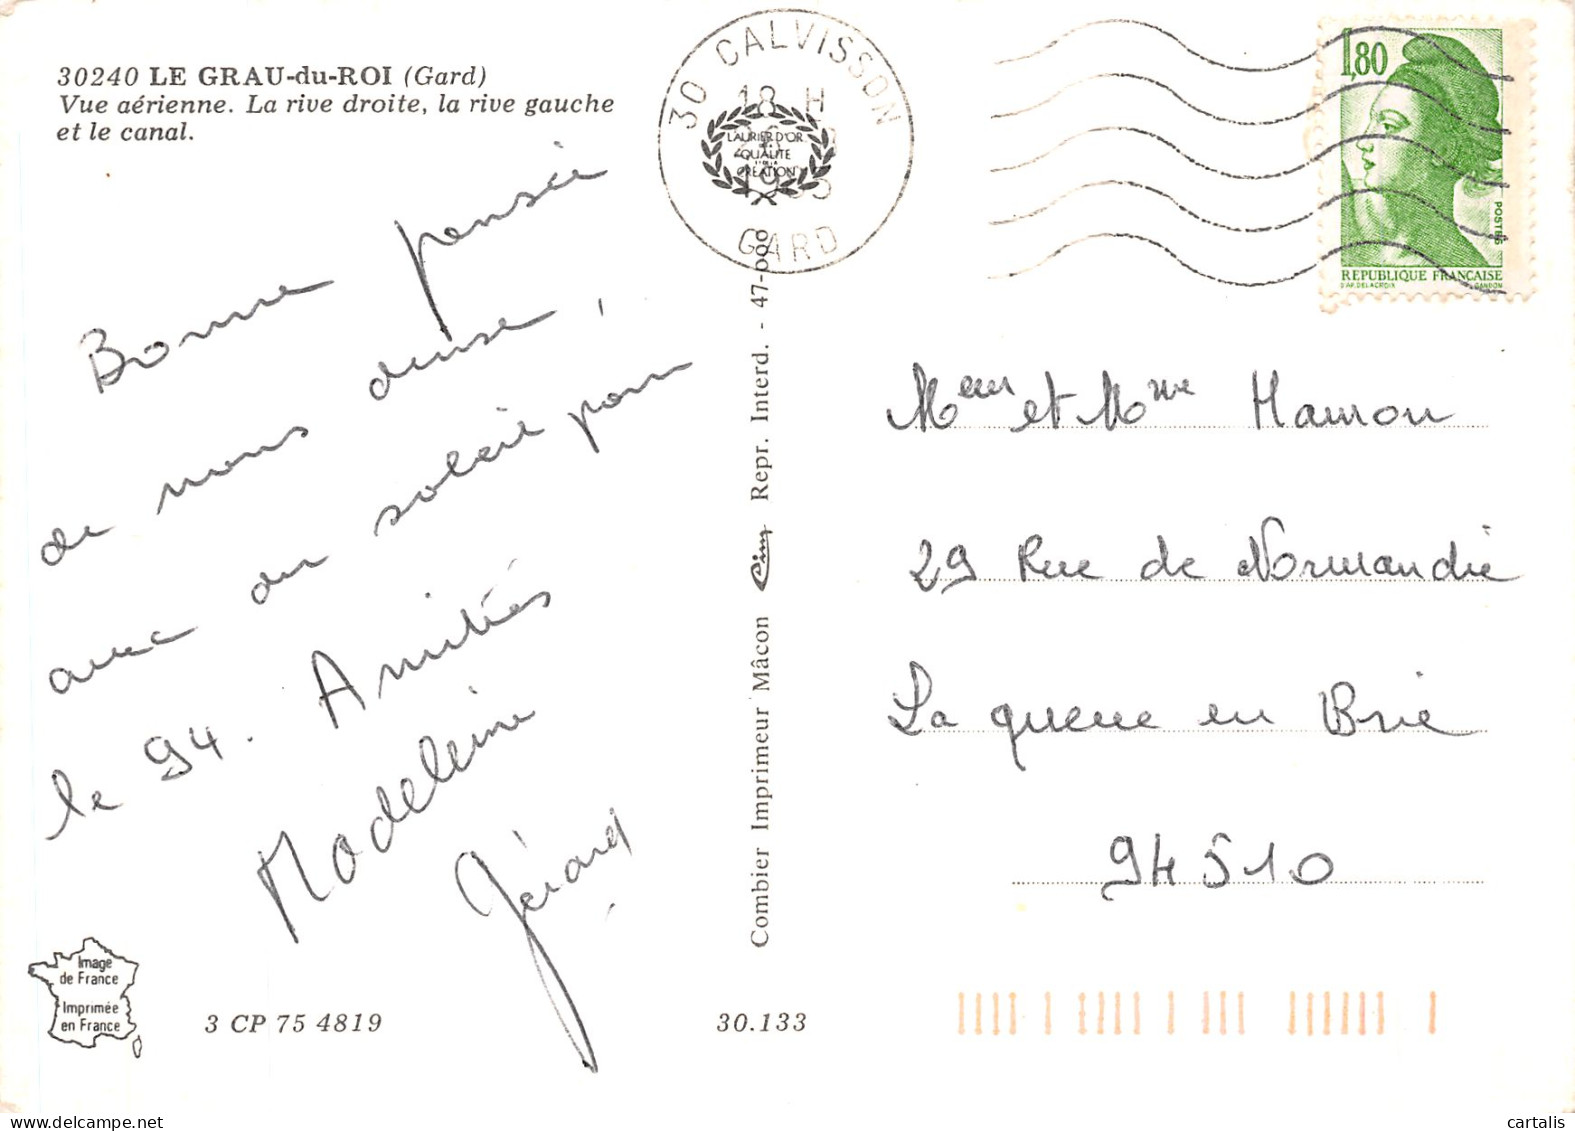 30240 LE GRAU-du-ROI (Gard)
Vue aérienne. La rive droite, la rive gauche
et le canal.
Bonne pensée
de nous deuse,
avec du soleil pour
le 94. Amitiés
Madeleine
Gérard
Image
de France
Imprimée
en France
3 CP 75 4819
30.133
Combier Imprimeur Mâcon Cim Repr. Interd. - 47-000
30 CALVISSON
18 H
GARD
LAURIER D'OR
QUALITÉ
CRÉATION
1,80
POSTES
REPUBLIQUE FRANÇAISE
D'AP. DELACROIX GANDON
Meur et Mme Hamon
29 Rue de Normandie
La queue en Brie
94510
cartalis
delcampe.net